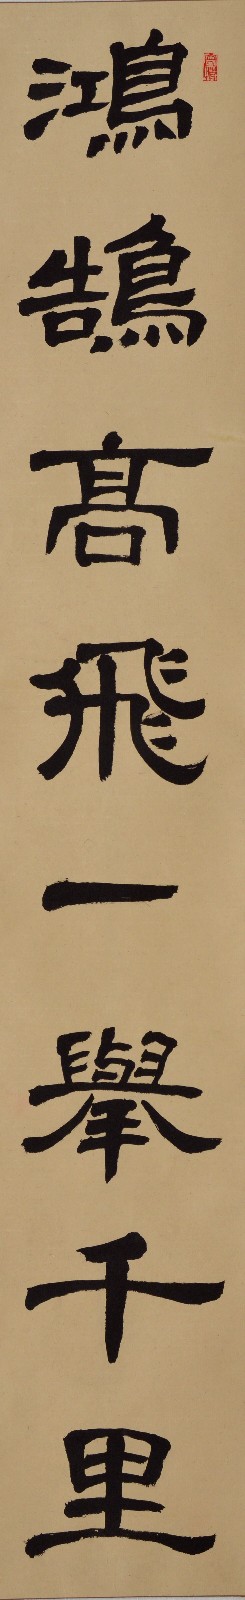 鴻鵠高飛一擧千里